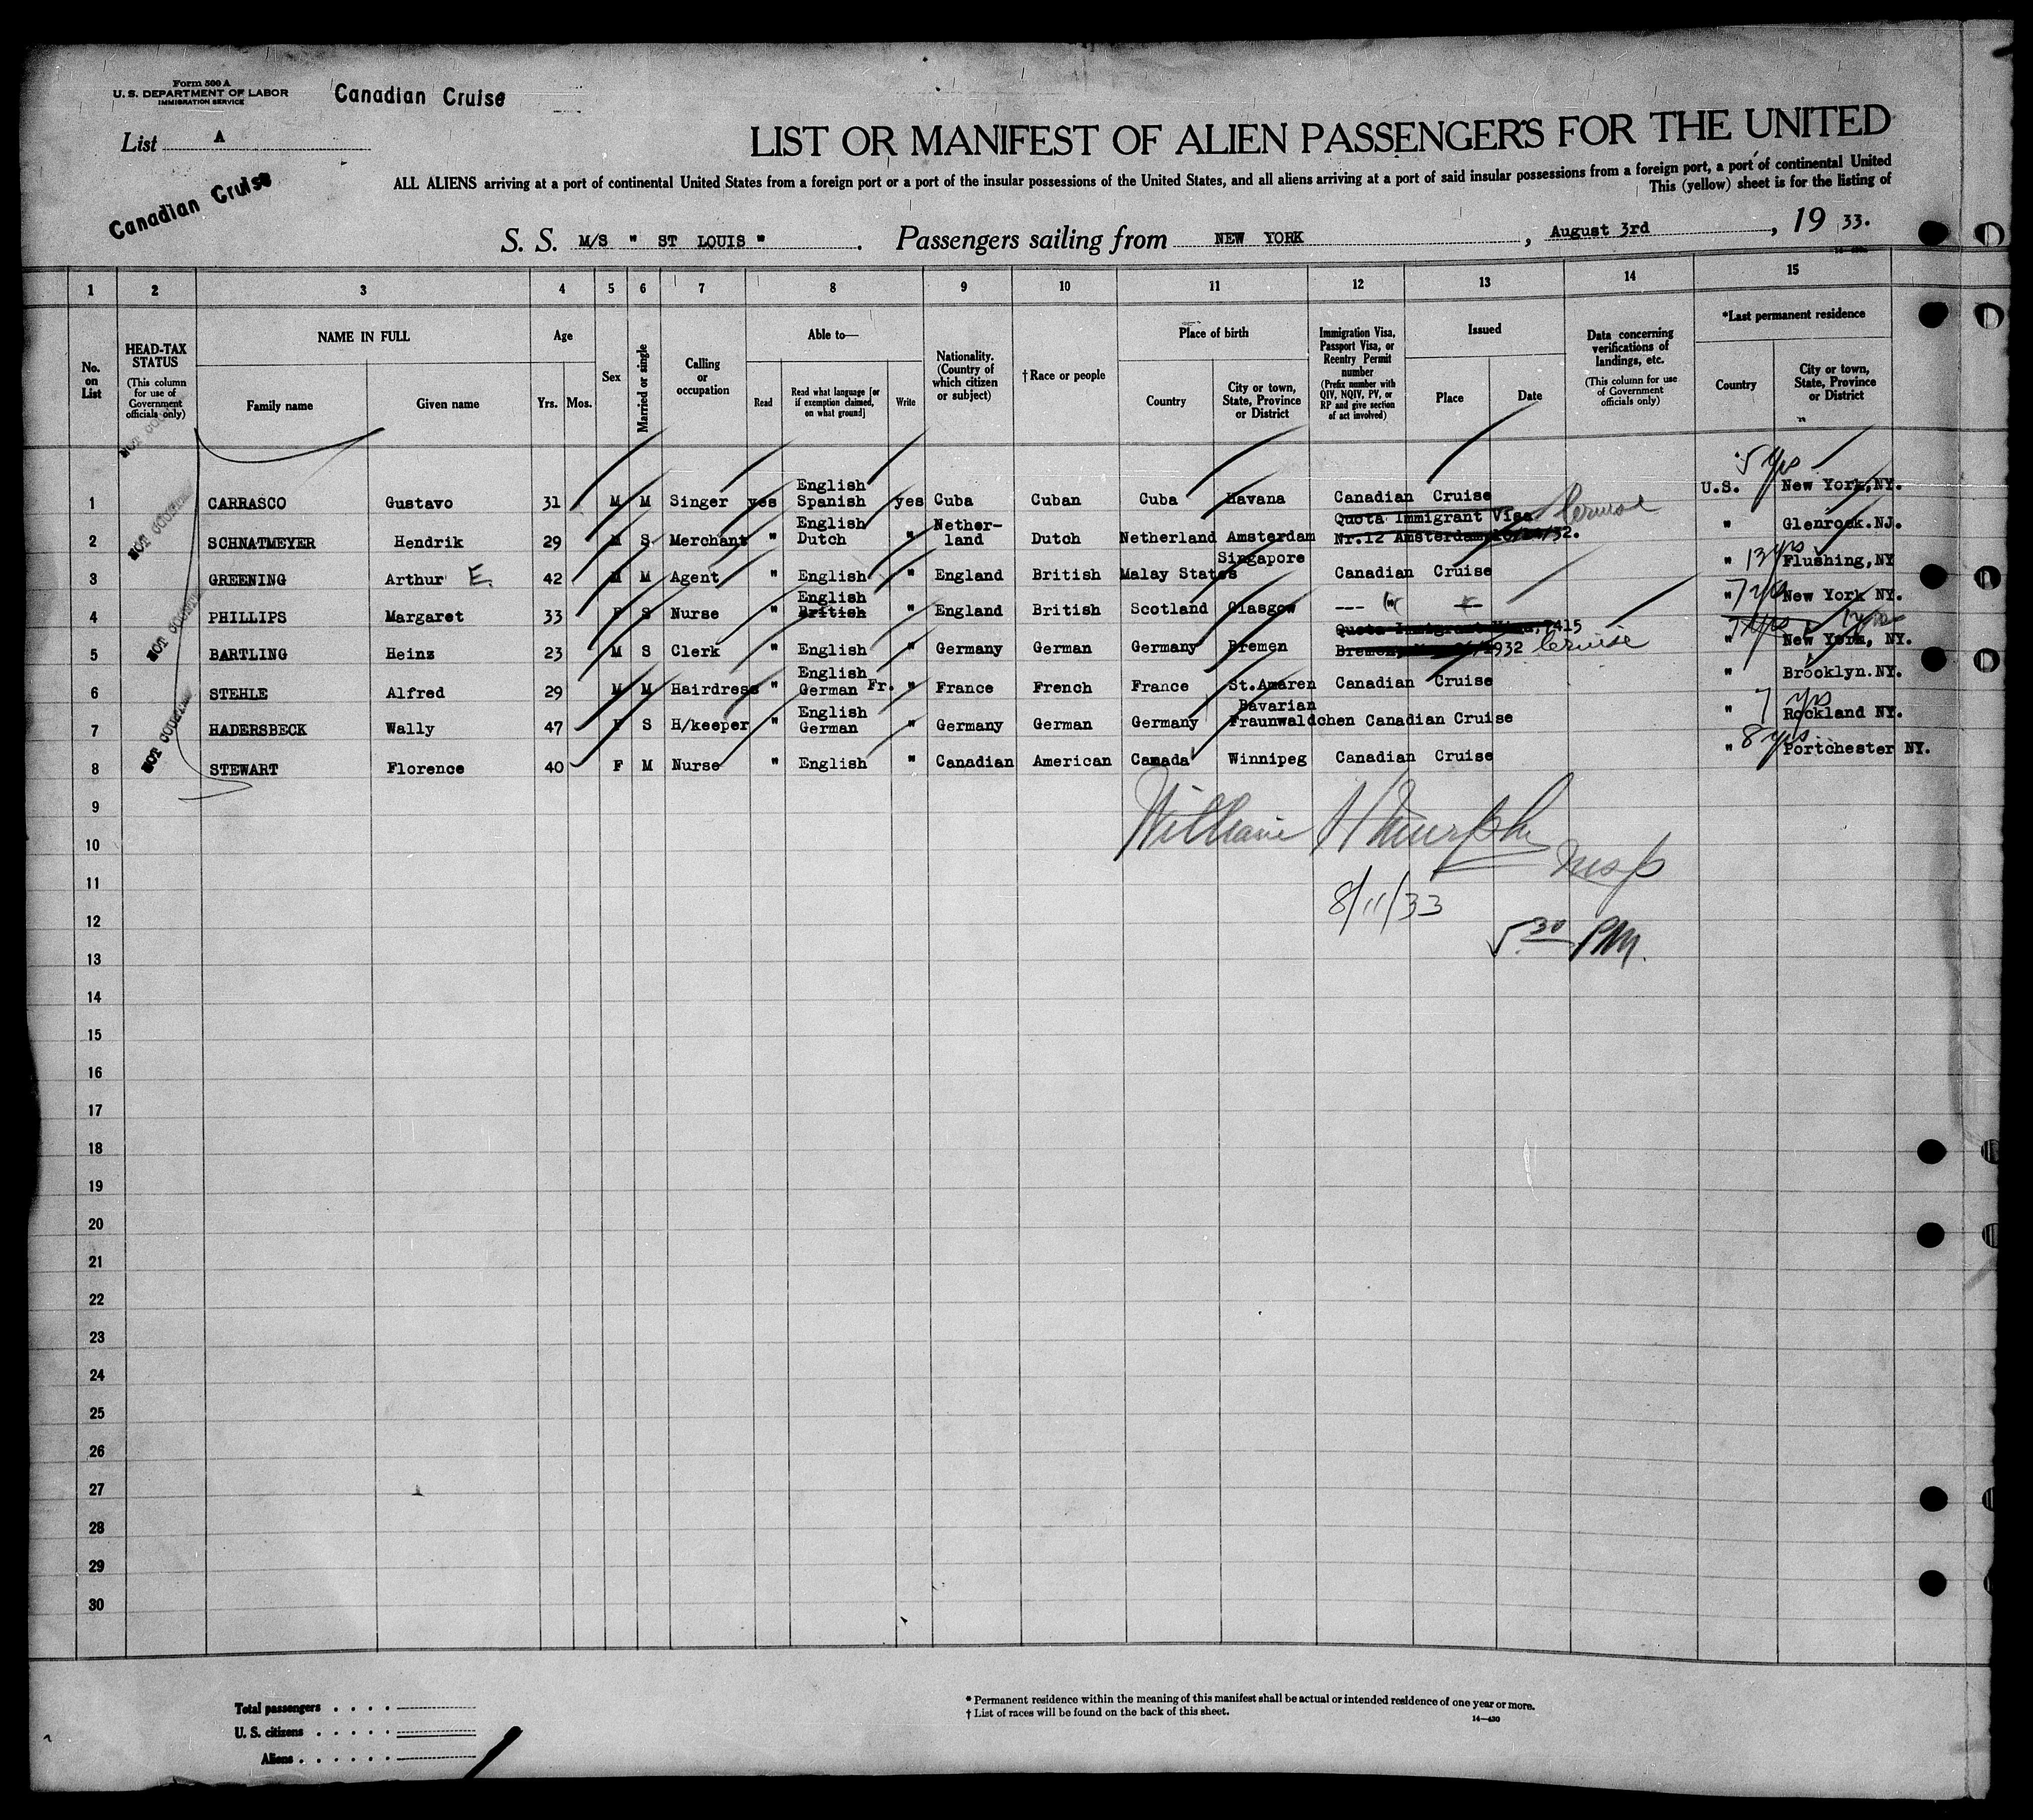 Form 500 A
U. S. DEPARTMENT OF LABOR
IMMIGRATION SERVICE
Canadian Cruise
List A
Canadian Cruise
LIST OR MANIFEST OF ALIEN PASSENGERS FOR THE UNITED
ALL ALIENS arriving at a port of continental United States from a foreign port or a port of the insular possessions of the United States, and all aliens arriving at a port of said insular possessions from a foreign port, a port of continental United
This (yellow) sheet is for the listing of
S. S. M/S " ST LOUIS " . Passengers sailing from NEW YORK , August 3rd , 19 33.
1 2 3 4 5 6 7 8 9 10 11 12 13 14 15
No. on List
HEAD-TAX STATUS
(This column for use of Government officials only)
NAME IN FULL
Family name
Given name
Age
Yrs. Mos.
Sex
Married or single
Calling or occupation
Able to—
Read
Read what language [or if exemption claimed, on what ground]
Write
Nationality. (Country of which citizen or subject)
†Race or people
Place of birth
Country
City or town, State, Province or District
Immigration Visa, Passport Visa, or Reentry Permit number
(Prefix number with QIV, NQIV, PV, or RP and give section of act involved)
Issued
Place
Date
Data concerning verifications of landings, etc.
(This column for use of Government officials only)
*Last permanent residence
Country
City or town, State, Province or District
NOT COU
5 yrs
1 CARRASCO Gustavo 31 M M Singer yes English Spanish yes Cuba Cuban Cuba Havana Canadian Cruise U.S. New York,NY.
2 SCHNATMEYER Hendrik 29 M S Merchant " English Dutch " Nether- land Dutch Netherland Amsterdam Quota Immigrant Visa Nr.12 Amsterdam /32. Cruise " Glenrock.NJ.
3 GREENING Arthur E. 42 M M Agent " English " England British Malay States Singapore Canadian Cruise " 13 yrs Flushing,NY
4 PHILLIPS Margaret 33 F S Nurse " English British " England British Scotland Glasgow --- " " 7 yrs New York NY.
5 BARTLING Heinz 23 M S Clerk " English " Germany German Germany Bremen Quota Immigrant Visa,7415 Bremen, 1932 Cruise " New York, NY.
6 STEHLE Alfred 29 M M Hairdress " English German Fr. " France French France St.Amaren Canadian Cruise " Brooklyn.NY.
7 HADERSBECK Wally 47 F S H/keeper " English German " Germany German Germany Bavarian Fraunwaldchen Canadian Cruise " 7 yrs Rockland NY.
8 STEWART Florence 40 F M Nurse " English " Canadian American Canada Winnipeg Canadian Cruise " 8 yrs Portchester NY.
9
William H Murphy
10
Insp
11
8/11/33
12
5 30 PM.
13
14
15
16
17
18
19
20
21
22
23
24
25
26
27
28
29
30
Total passengers . . . .
U. S. citizens . . . . .
Aliens . . . . . .
* Permanent residence within the meaning of this manifest shall be actual or intended residence of one year or more.
† List of races will be found on the back of this sheet.
14—430